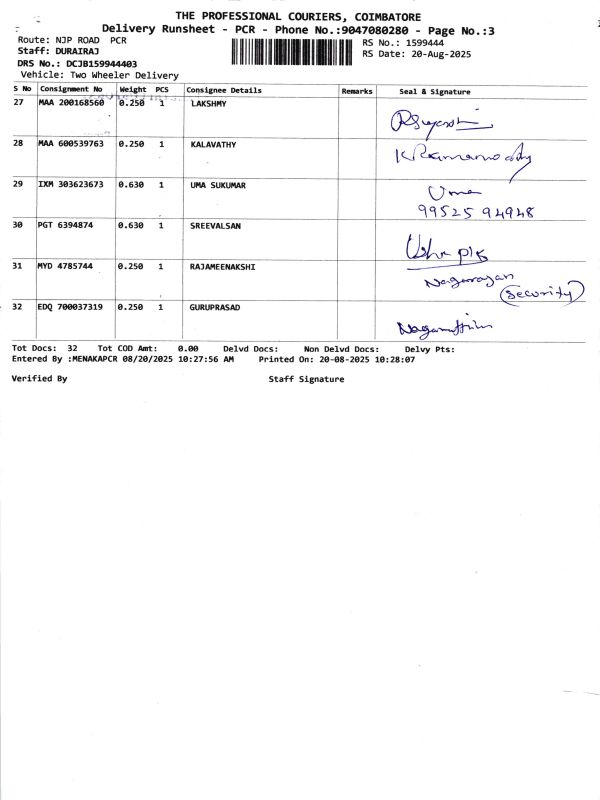 THE PROFESSIONAL COURIERS, COIMBATORE
Delivery Runsheet - PCR - Phone No.:9047080280 - Page No.:3
Route: NJP ROAD PCR
RS No.: 1599444
Staff: DURAIRAJ
RS Date: 20-Aug-2025
DRS No.: DCJB159944403
Vehicle: Two Wheeler Delivery
S No Consignment No Weight PCS Consignee Details Remarks Seal & Signature
27 MAA 200168560 0.250 1 LAKSHMY
28 MAA 600539763 0.250 1 KALAVATHY
29 IXM 303623673 0.630 1 UMA SUKUMAR Uma
99525 94948
30 PGT 6394874 0.630 1 SREEVALSAN
Usha
31 MYD 4785744 0.250 1 RAJAMEENAKSHI Nagarajan
(Security)
32 EDQ 700037319 0.250 1 GURUPRASAD
Tot Docs: 32 Tot COD Amt: 0.00 Delvd Docs: Non Delvd Docs: Delvy Pts:
Entered By :MENAKAPCR 08/20/2025 10:27:56 AM Printed On: 20-08-2025 10:28:07
Verified By Staff Signature